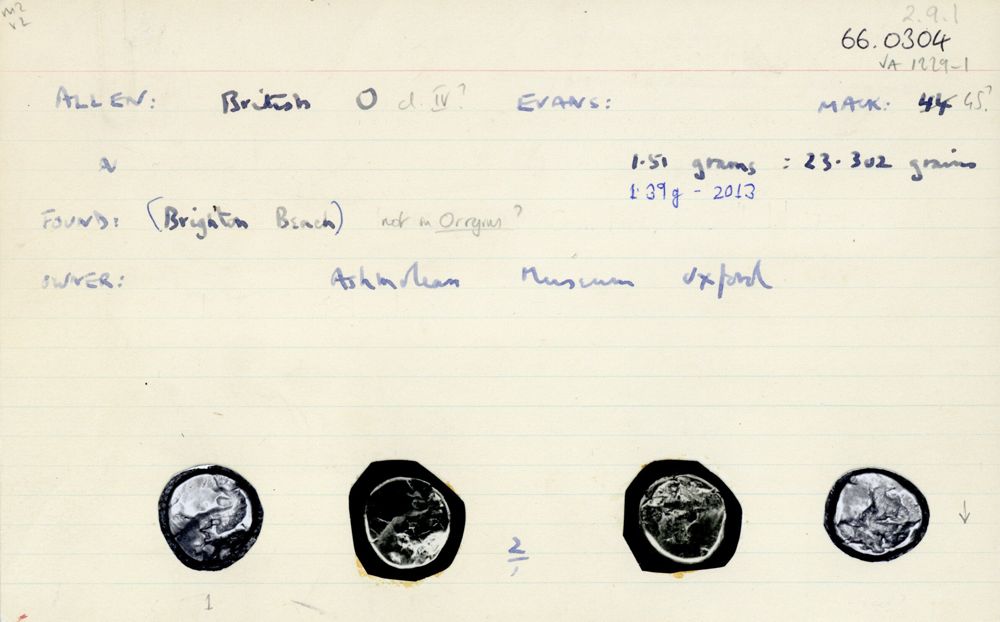 m2
v2
2.9.1
66.0304
VA 1229-1
ALLEN: British O cl. IV? EVANS: MACK: 44 45?
N 1.51 grams = 23.302 grains
1.39g - 2013
FOUND: (Brighton Beach) not in Orryns?
OWNER: Ashmolean Museum Oxford
2
1